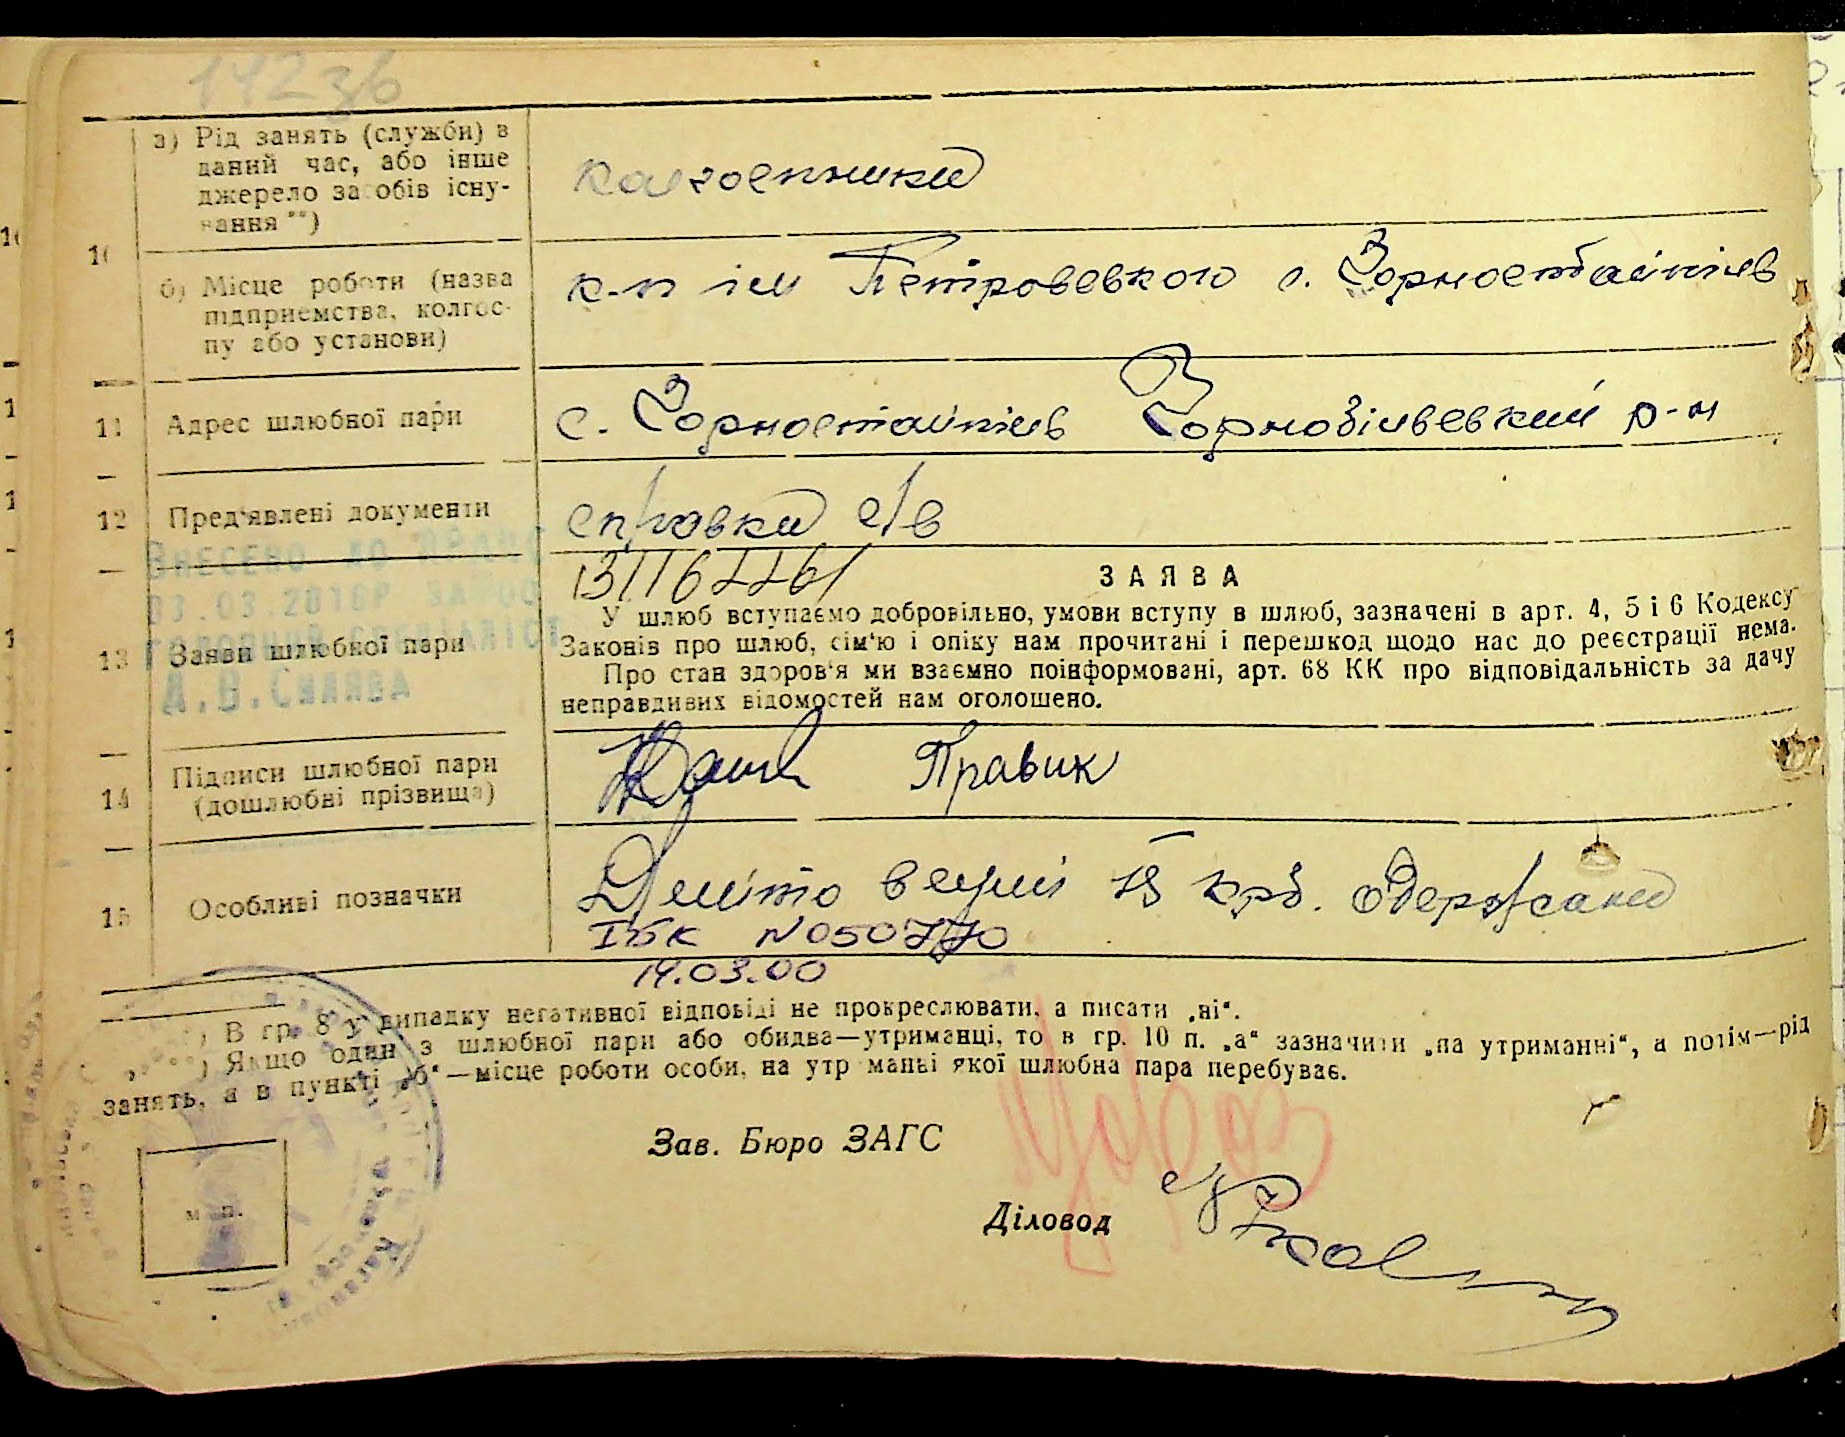 142 зв
а) Рід занять (служби) в
даний час, або інше
джерело засобів існу-
вання **)
колгоспники
10
б) Місце роботи (назва
підприємства, колгос-
пу або установи)
к-п ім Петровського с. Горностайпіль
11 Адрес шлюбної пари
с. Горностайпіль Чорнобільський р-н
12 Пред'явлені документи
справки с/в
ВНЕСЕНО ДО ДРАЦС
03.03.2010Р
ГОЛОВНИЙ СПЕЦІАЛІСТ
13 Заяви шлюбної пари
ЗАЯВА
У шлюб вступаємо добровільно, умови вступу в шлюб, зазначені в арт. 4, 5 і 6 Кодексу
Законів про шлюб, сім'ю і опіку нам прочитані і перешкод щодо нас до реєстрації нема.
Про стан здоров'я ми взаємно поінформовані, арт. 68 КК про відповідальність за дачу
неправдивих відомостей нам оголошено.
14 Підписи шлюбної пари
(дошлюбні прізвища)
Правик
15 Особливі позначки
в сумі 15 крб. одержано
ІБК N050770
14.03.00
*) В гр. 8 у випадку негативної відповіді не прокреслювати, а писати „ні“.
**) Якщо один з шлюбної пари або обидва—утриманці, то в гр. 10 п. „а“ зазначити „на утриманні“, а потім—рід
занять, а в пункті „б“—місце роботи особи, на утриманні якої шлюбна пара перебуває.
Зав. Бюро ЗАГС
Діловод
м. п.